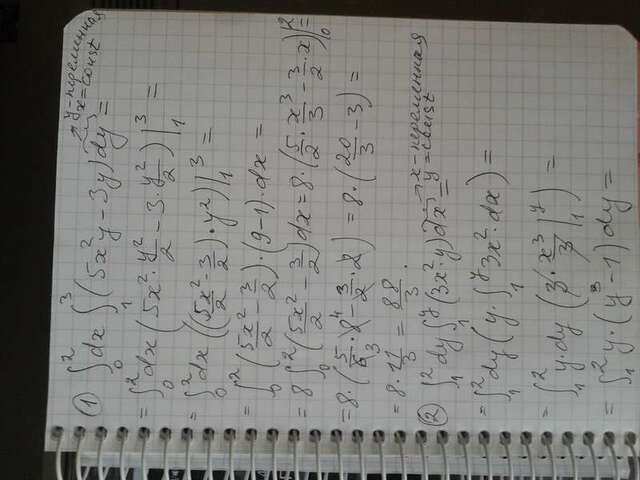 ① ∫₀² dx ∫₁³ (5x²y − 3y) dy = → y-переменная x = const
= ∫₀² dx (5x² · y²/2 − 3 · y²/2) |₁³ =
= ∫₀² dx ((5x²/2 − 3/2) · y²) |₁³ =
= ∫₀² (5x²/2 − 3/2) · (9 − 1) · dx =
= 8 ∫₀² (5x²/2 − 3/2) dx = 8 · (5/2 · x³/3 − 3/2 · x) |₀² =
= 8 · (5/6₃ · 8⁴ − 3/2 · 2) = 8 · (20/3 − 3) =
= 8 · 11/3 = 88/3 .
② ∫₁² dy ∫₁ʸ (3x² · y) dx = → x-переменная y = const
= ∫₁² dy (y · ∫₁ʸ 3x² · dx) =
= ∫₁² y · dy (3 · x³/3 |₁ʸ) =
= ∫₁² y · (y³ − 1) dy =